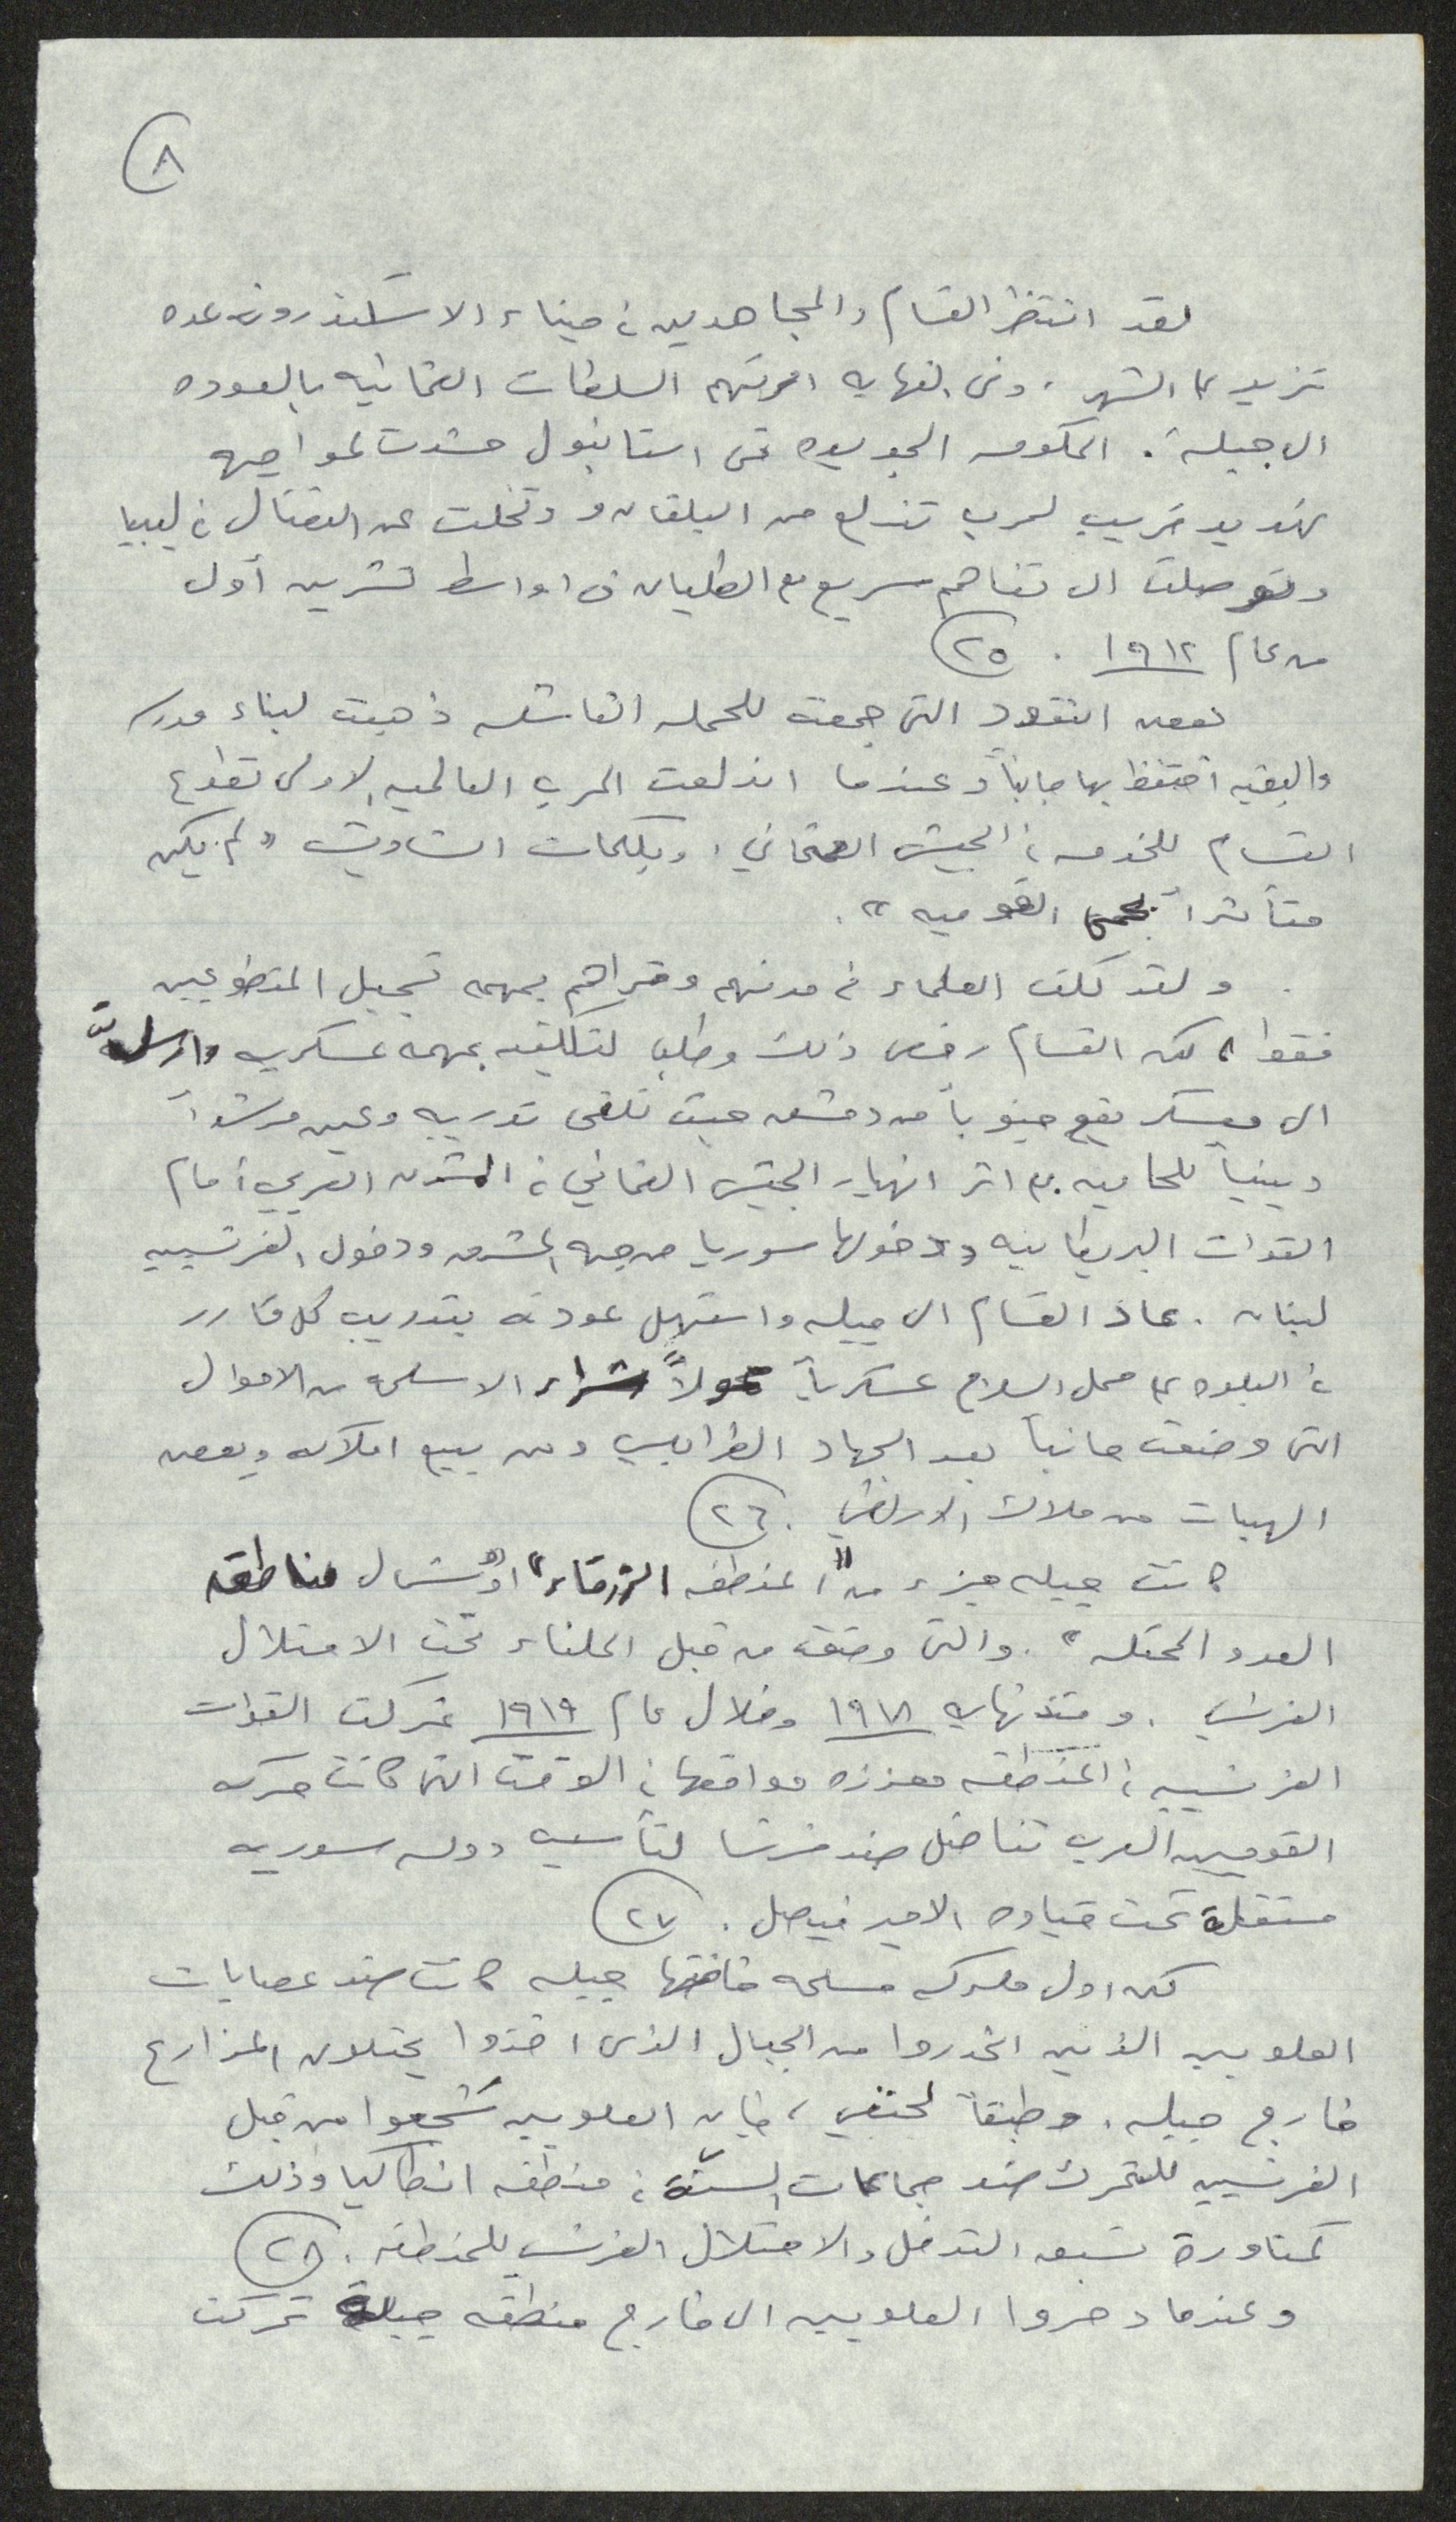 ٨
لقد انتظر القسام والمجاهدين في ميناء الاسكندرونه عده
تزيد عن الشهر ، وفى النهايه امرتهم السلطات العثمانيه بالعوده
الى جبلة . الحكومه الجديده فى استانبول حشدت لمواجهه
تهديد قريب لحرب تندلع من البلقان و وتخلت عن القتال في ليبيا
وتوصلت الى تفاهم سريع مع الطليان فى اواسط تشرين أول
من عام ١٩١٢ . ٢٥
بعض النقود التى جمعت للحمله الفاشله ذهبت لبناء مدرسه
والبقيه احتفظ بها جانباً وعندما اندلعت الحرب العالميه الاولى تطوع
القسام للخدمه في الجيش العثماني ، وبكلمات الشاويش " لم يكن
متأثراً بحمى القوميه " .
ولقد كلف العلماء فى مدنهم وقراهم بمهمه تسجيل المتطوعين
فقط ، لكن القسام رفض ذلك وطلب لتكليفه بمهمه عسكريه وارسل
الى معسكر يقع جنوباً من دمشق حيث تلقى تدريبه وعين مرشداً
دينياً للحاميه . اثر انهيار الجيش العثماني في المشرق العربي أمام
القوات البريطانيه ودخولها سوريا من جهه الشرق ودخول الفرنسيين
لبنان . عاد القسام الى جبله واستهل عودته بتدريب كل قادر
في البلده على حمل السلاح عسكرياً ممولاً شراء الاسلحه من الاموال
التى وضعت جانباً بعد الجهاد الطرابلسي ومن بيع املاكه وبعض
الهبات من ملاك الاراضي . ٢٦
كانت جبله جزء من " المنطقه الزرقاء " او " شمال مناطق
العدو المحتله " . والتى وضعت من قبل الحلفاء تحت الاحتلال
الفرنسي . ومنذ نهايه ١٩١٨ وخلال عام ١٩١٩ تحركت القوات
الفرنسيه في المنطقه معززه مواقعها في الوقت التى كانت حركه
القوميين العرب تناضل ضد فرنسا لتأسيس دوله سوريه
مستقلة تحت قياده الامير فيصل . ٢٧
لكن اول معركه مسلحه خاضتها جبله كانت ضد عصابات
العلويين الذين انحدروا من الجبال الذى اخذوا يحتلون المزارع
خارج جبله . وطبقاً لحنفي ، فان العلويين شجعوا من قبل
الفرنسيين للتحرك ضد جماعات السنّة في منطقه انطاكيا وذلك
كمناورة تسبق التدخل والاحتلال الفرنسي للمنطقه . ٢٨
وعندما دحروا العلويين الى خارج منطقه جبلة تحركت